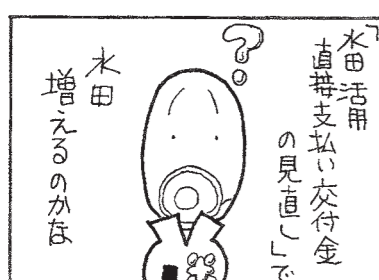 「水田活用
直接支払い交付金
の見直し」で
水田
増えるのかな
?
米